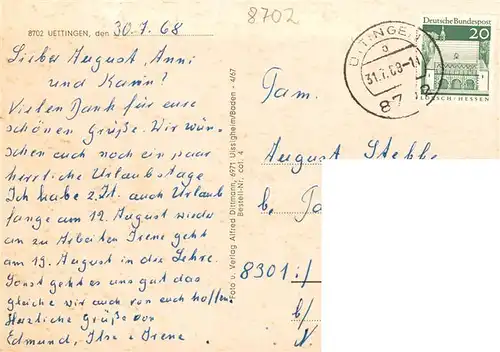 8702
8702 UETTINGEN, den 30.7.68
Lieber August, Anni
und Karin!
Vielen Dank für eure
schönen Grüße. Wir wün-
schen auch noch ein paar
herrliche Urlaubstage
Ich habe z.Zt. auch Urlaub
fange am 12. August wieder
an zu Arbeiten Irene geht
am 19. August in die Lehre.
Sonst geht es uns gut das
gleiche wir auch von euch hoffen.
Herzliche Grüße von
Edmund, Ilse + Irene
Foto u. Verlag Alfred Dittmann, 6971 Uissigheim/Baden - 4/67
Bestell-Nr. cat. 4
UETTINGEN
a
31.7.68-1
87 2
Deutsche Bundespost
20
LORSCH-HESSEN
Fam.
August Stebb
b,
8301
b/
N.